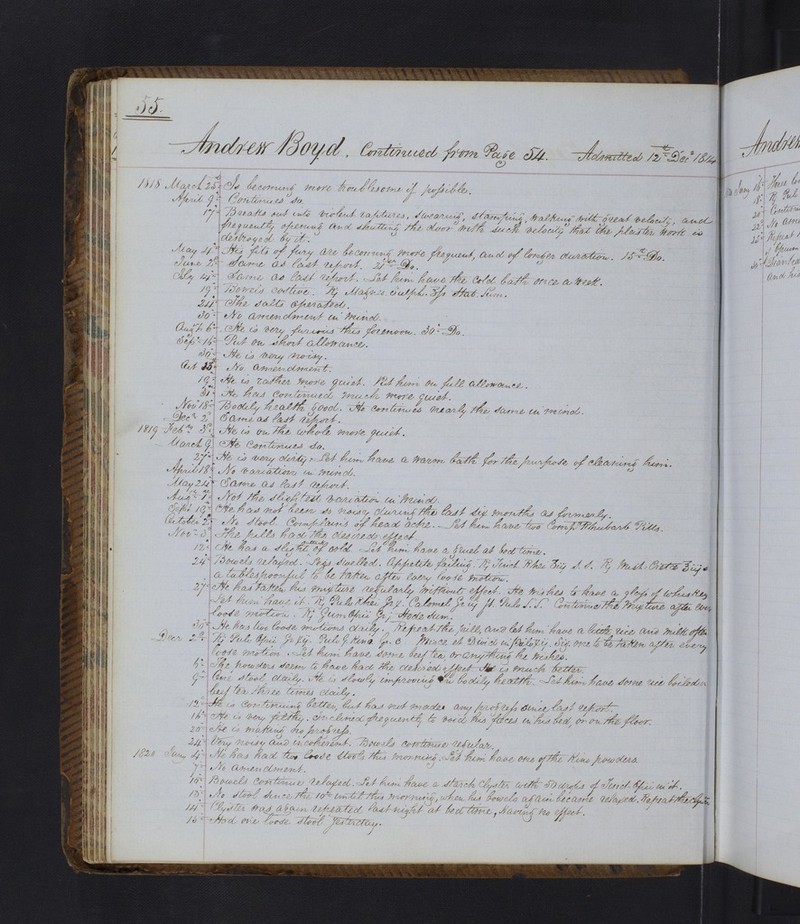 55.
Andrew Boyd. Continued from Page 54. Admitted 12th Decr 1814
1818 March 25th Is becoming more troublesome if possible.
April 9th Continues so.
17th Breaks out into violent raptures, swearing, stamping, walking with great velocity, and
frequently opening and shutting the door with such velocity that the plaster work is
destroyed by it.
May 4th His fits of fury are becoming more frequent, and of longer duration. 15th Do.
June 2d Same as last report. 21st Do.
July 14th Same as last report. Let him have the cold bath once a week.
19th Bowels costive. Rx Magnes. Sulph. Stat. Sum.
24th The salts operated.
30th No amendment in mind.
Augt 6th He is very furious this forenoon. 30th Do.
Sept 16th Put on short allowance.
30th He is very noisy.
Oct No amendment.
19th He is rather more quiet. Put him on full allowance.
31st He has continued much more quiet.
Novr 18th Bodily health good. He continues nearly the same in mind.
Decr 2d Same as last report.
1819 Feby 3d He is on the whole more quiet.
March 9th He continues so.
27th He is very dirty. Let him have a warm bath for the purpose of cleaning him.
April 18th No variation in mind.
May 24th Same as last report.
Augt 7th Not the slightest variation in mind.
Sept 19th He has not been so noisy during the last six months as formerly.
October 2d No stool. Complains of head ache. Let him have two Comp. Rhubarb Pills.
Novr 3d The pills had the desired effect.
12th He has a slight cold. Let him have a gruel at bed time.
24th Bowels relaxed. Legs swelled. Appetite failing. Rx Tinct Rhei
a tablespoonful to be taken after every loose motion.
27th He has taken his mixture regularly without effect. He wishes to have a glass of whiskey
Let him have it. Rx Pulv Rhei Calomel Continue the mixture after every
loose motion. Rx Gum Opii Gr j Hora Sum.
30th He has two loose motions daily. Repeat the pill, and let him have a little rice and milk often
Decr 2d Rx Pulv Opii Pulv Kino Misce et Divid in one to be taken after every
loose motion. Let him have some beef tea, or anything he wishes.
The powders seem to have had the desired effect. He is much better.
9th One stool daily. He is slowly improving in bodily health. Let him have some rice boiled in
beef tea three times daily.
12th He is continuing better, but has not made any progress since last report.
16th He is very filthy, inclined frequently to void his fæces in his bed, or on the floor.
20th He is making no progress.
24th Very noisy and incoherent. Bowels continue regular.
1820 Jany 4th He has had two loose stools this morning. Let him have one of the Kino powders
7th No amendment.
10th Bowels continue relaxed. Let him have a starch clyster with drops of Tinct Opii in it.
13th No stool since the 10th until this morning, when his bowels again became relaxed. Repeat the clyster
14th Clyster was again repeated last night at bed time, having no effect.
16th Had one loose stool yesterday.
Andrew